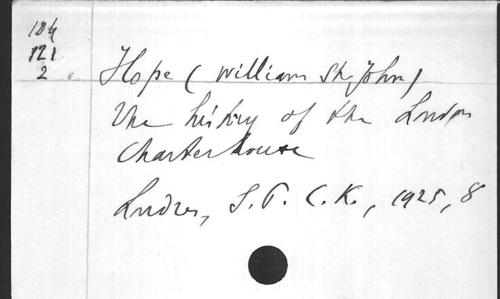 184
121
2
Hope (William St. John)
The history of the London
Charterhouse
Londres, S. P. C. K., 1925, 8